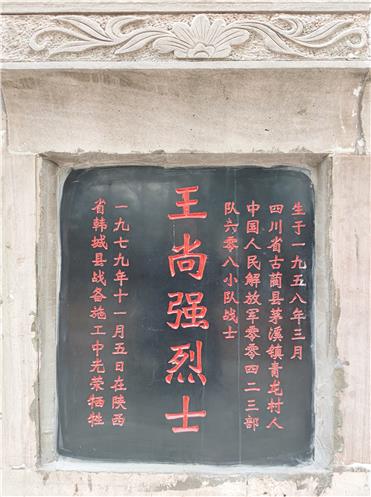 生于一九五八年三月
四川省古蔺县茅溪镇青龙村人
中国人民解放军零零四二三部
队六零八小队战士
王尚强烈士
一九七九年十一月五日在陕西
省韩城县战备施工中光荣牺牲